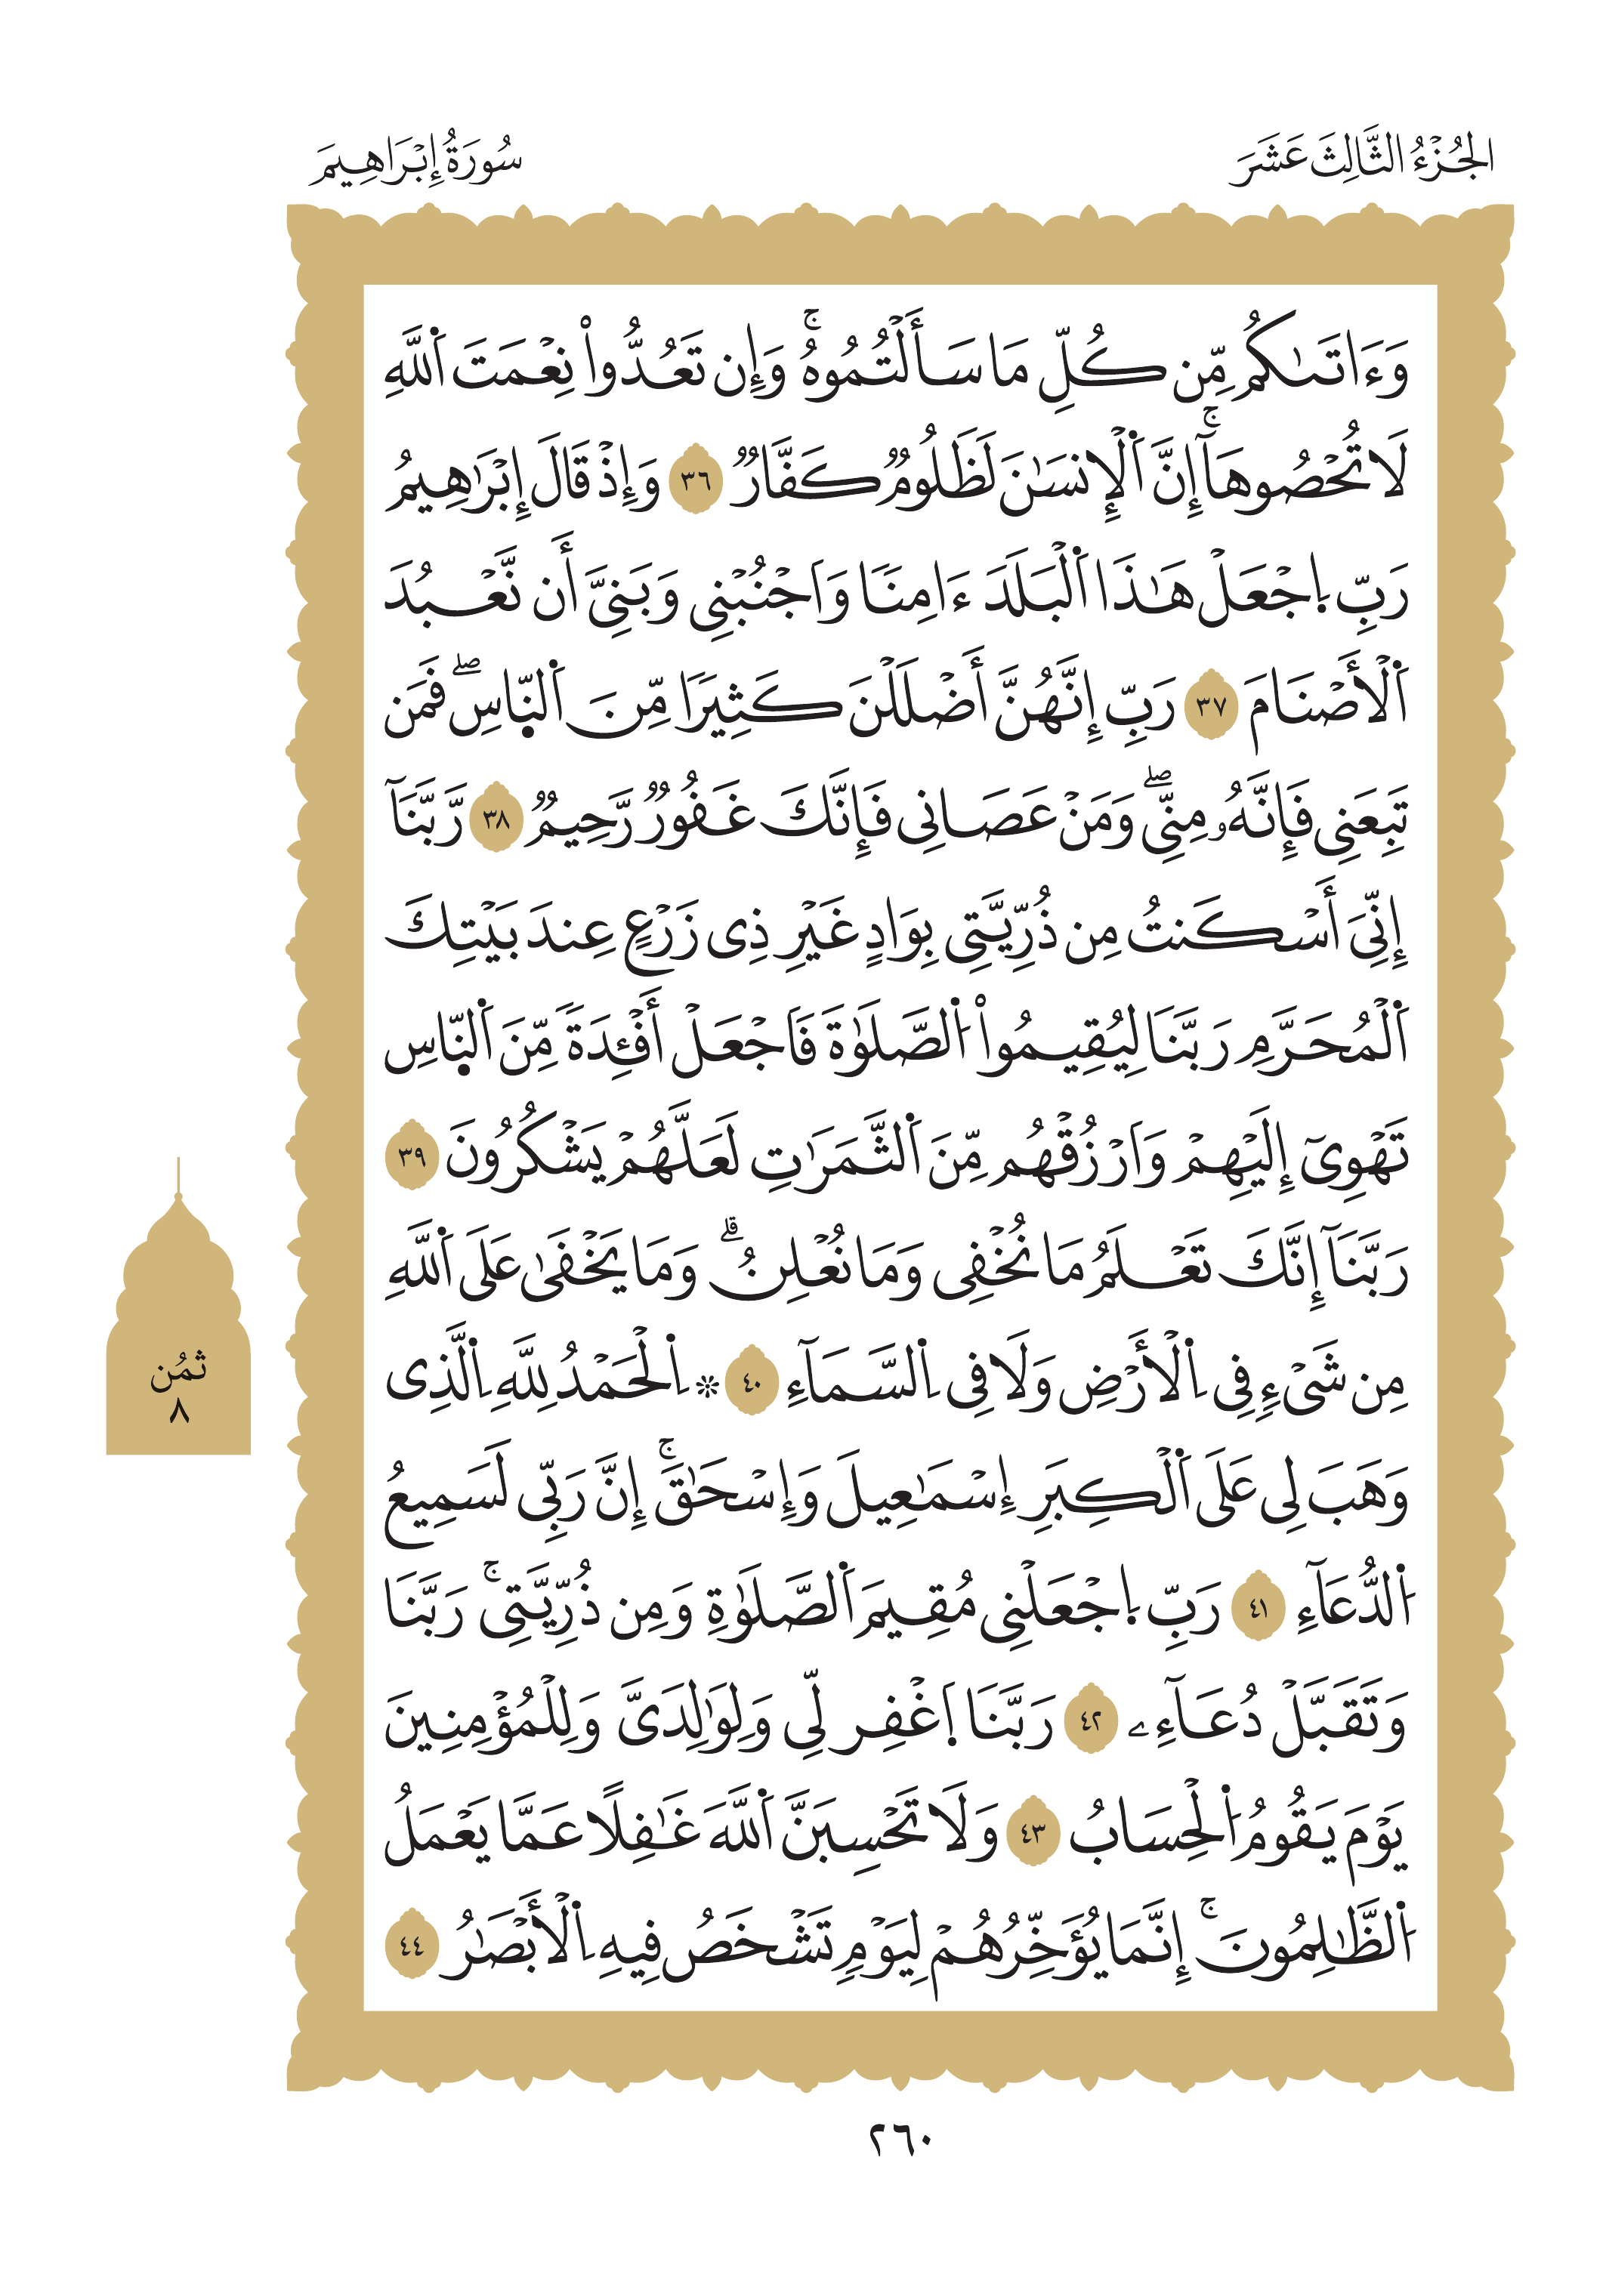 الجُزْءُ الثَّالِثَ عَشَرَ
سُورَةُ إِبْرَاهِيمَ
وَءَاتَىٰكُم مِّن كُلِّ مَا سَأَلْتُمُوهُۚ وَإِن تَعُدُّواْ نِعْمَتَ اَ۬للَّهِ
لَا تُحْصُوهَاۚ إِنَّ اَ۬لْإِنسَٰنَ لَظَلُومٞ كَفَّارٞ ٣٦ وَإِذْ قَالَ إِبْرَٰهِيمُ
رَبِّ اِ۪جْعَلْ هَٰذَا اَ۬لْبَلَدَ ءَامِنٗا وَاَجْنُبْنِي وَبَنِيَّ أَن نَّعْبُدَ
اَ۬لْأَصْنَامَ ٣٧ رَبِّ إِنَّهُنَّ أَضْلَلْنَ كَثِيرٗا مِّنَ اَ۬لنّ۪اسِۖ فَمَن
تَبِعَنِي فَإِنَّهُۥ مِنِّيۖ وَمَنْ عَصَانِي فَإِنَّكَ غَفُورٞ رَّحِيمٞ ٣٨ رَّبَّنَآ
إِنِّيَ أَسْكَنتُ مِن ذُرِّيَّتِي بِوَادٍ غَيْرِ ذِي زَرْعٍ عِندَ بَيْتِكَ
اَ۬لْمُحَرَّمِ رَبَّنَا لِيُقِيمُواْ اُ۬لصَّلَوٰةَ فَاَجْعَلْ أَفْـِٔدَةٗ مِّنَ اَ۬لنّ۪اسِ
تَهْوِيٓ إِلَيْهِمْ وَاَرْزُقْهُم مِّنَ اَ۬لثَّمَرَٰتِ لَعَلَّهُمْ يَشْكُرُونَ ٣٩
رَبَّنَآ إِنَّكَ تَعْلَمُ مَا نُخْفِي وَمَا نُعْلِنُۗ وَمَا يَخْفَىٰ عَلَى اَ۬للَّهِ
مِن شَيْءٖ فِي اِ۬لْأَرْضِ وَلَا فِي اِ۬لسَّمَآءِ ٤٠ * اِ۬لْحَمْدُ لِلَّهِ اِ۬لَّذِي
وَهَبَ لِي عَلَى اَ۬لْكِبَرِ إِسْمَٰعِيلَ وَإِسْحَٰقَۚ إِنَّ رَبِّي لَسَمِيعُ
اُ۬لدُّعَآءِ ٤١ رَبِّ اِ۪جْعَلْنِي مُقِيمَ اَ۬لصَّلَوٰةِ وَمِن ذُرِّيَّتِيۚ رَبَّنَا
وَتَقَبَّلْ دُعَآءِۦ ٤٢ رَبَّنَا اَ۪غْفِر لِّي وَلِوَٰلِدَيَّ وَلِلْمُؤْمِنِينَ
يَوْمَ يَقُومُ اُ۬لْحِسَابُ ٤٣ وَلَا تَحْسِبَنَّ اَ۬للَّهَ غَٰفِلًا عَمَّا يَعْمَلُ
اُ۬لظَّٰلِمُونَۚ إِنَّمَا يُؤَخِّرُهُمْ لِيَوْمٖ تَشْخَصُ فِيهِ اِ۬لْأَبْصَٰرُ ٤٤
ثُمُن
٨
٢٦٠